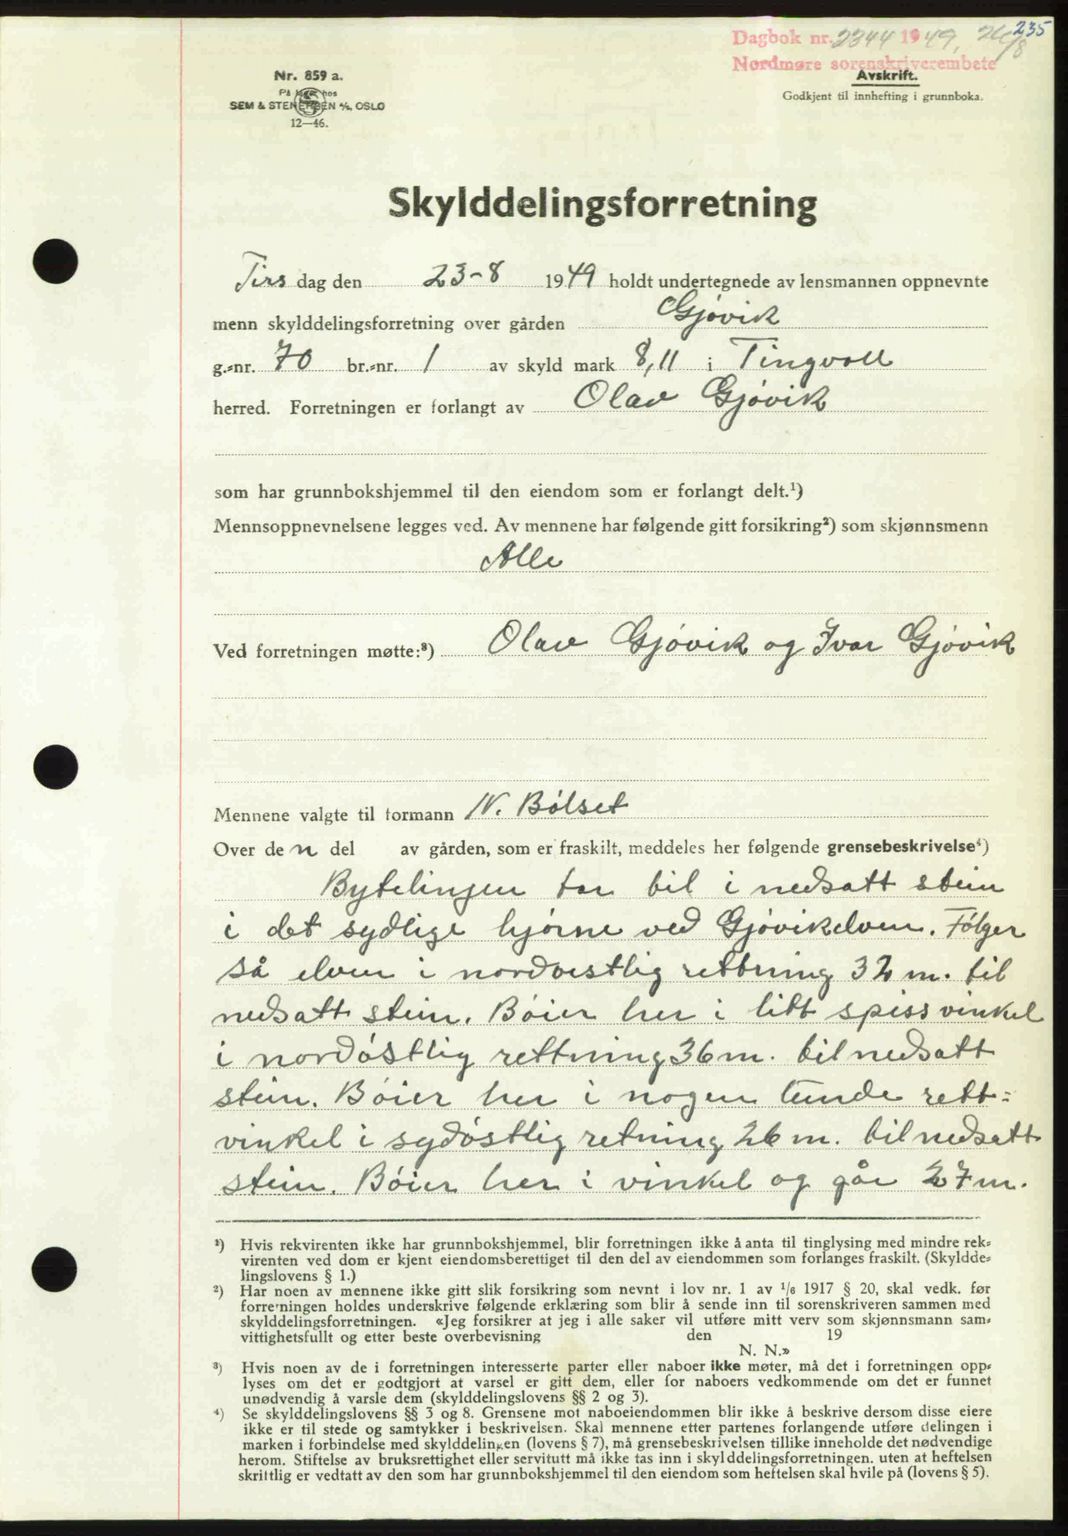 235
Dagbok nr. 2344 1949, 26/8
Nordmøre sorenskriverembete
Nr. 859 a.
På lager hos
SEM & STENERSEN A/S, OSLO
12—46.
Avskrift.
Godkjent til innhefting i grunnboka.
Skylddelingsforretning
Tirs dag den 23-8 1949 holdt undertegnede av lensmannen oppnevnte
menn skylddelingsforretning over gården Gjøvik
g.-nr. 70 br.-nr. 1 av skyld mark 8,11 i Tingvoll
herred. Forretningen er forlangt av Olav Gjøvik
som har grunnbokshjemmel til den eiendom som er forlangt delt.¹)
Mennsoppnevnelsene legges ved. Av mennene har følgende gitt forsikring²) som skjønnsmenn
Alle
Ved forretningen møtte:³) Olav Gjøvik og Ivar Gjøvik
Mennene valgte til formann N. Bølset
Over de n del av gården, som er fraskilt, meddeles her følgende grensebeskrivelse⁴)
Bytelingen tar til i nedsatt stein
i det sydlige hjørne ved Gjøvikelven. Følger
så elven i nordvestlig rettning 32 m. til
nedsatt stein. Bøier her i litt spiss vinkel
i nordøstlig rettning 36 m. til nedsatt
stein. Bøier her i nogen lunde rett-
vinkel i sydøstlig retning 26 m. til nedsatt
stein. Bøier her i vinkel og går 27 m.
¹) Hvis rekvirenten ikke har grunnbokshjemmel, blir forretningen ikke å anta til tinglysing med mindre rek-
virenten ved dom er kjent eiendomsberettiget til den del av eiendommen som forlanges fraskilt. (Skyldde-
lingslovens § 1.)
²) Har noen av mennene ikke gitt slik forsikring som nevnt i lov nr. 1 av 1/6 1917 § 20, skal vedk. før
forretningen holdes underskrive følgende erklæring som blir å sende inn til sorenskriveren sammen med
skylddelingsforretningen. «Jeg forsikrer at jeg i alle saker vil utføre mitt verv som skjønnsmann sam-
vittighetsfullt og etter beste overbevisning den 19
N. N.»
³) Hvis noen av de i forretningen interesserte parter eller naboer ikke møter, må det i forretningen opp-
lyses om det er godtgjort at varsel er gitt dem, eller for naboers vedkommende om det er funnet
unødvendig å varsle dem (skylddelingslovens §§ 2 og 3).
⁴) Se skylddelingslovens §§ 3 og 8. Grensene mot naboeiendommen blir ikke å beskrive dersom disse eiere
ikke er til stede og samtykker i beskrivelsen. Skal mennene etter partenes forlangende utføre delingen i
marken i forbindelse med skylddelingen (lovens § 7), må grensebeskrivelsen tillike inneholde det nødvendige
herom. Stiftelse av bruksrettighet eller servitutt må ikke tas inn i skylddelingsforretningen. uten at heftelsen
skriftlig er vedtatt av den som har grunnbokshjemmel til den eiendom som heftelsen skal hvile på (lovens § 5).